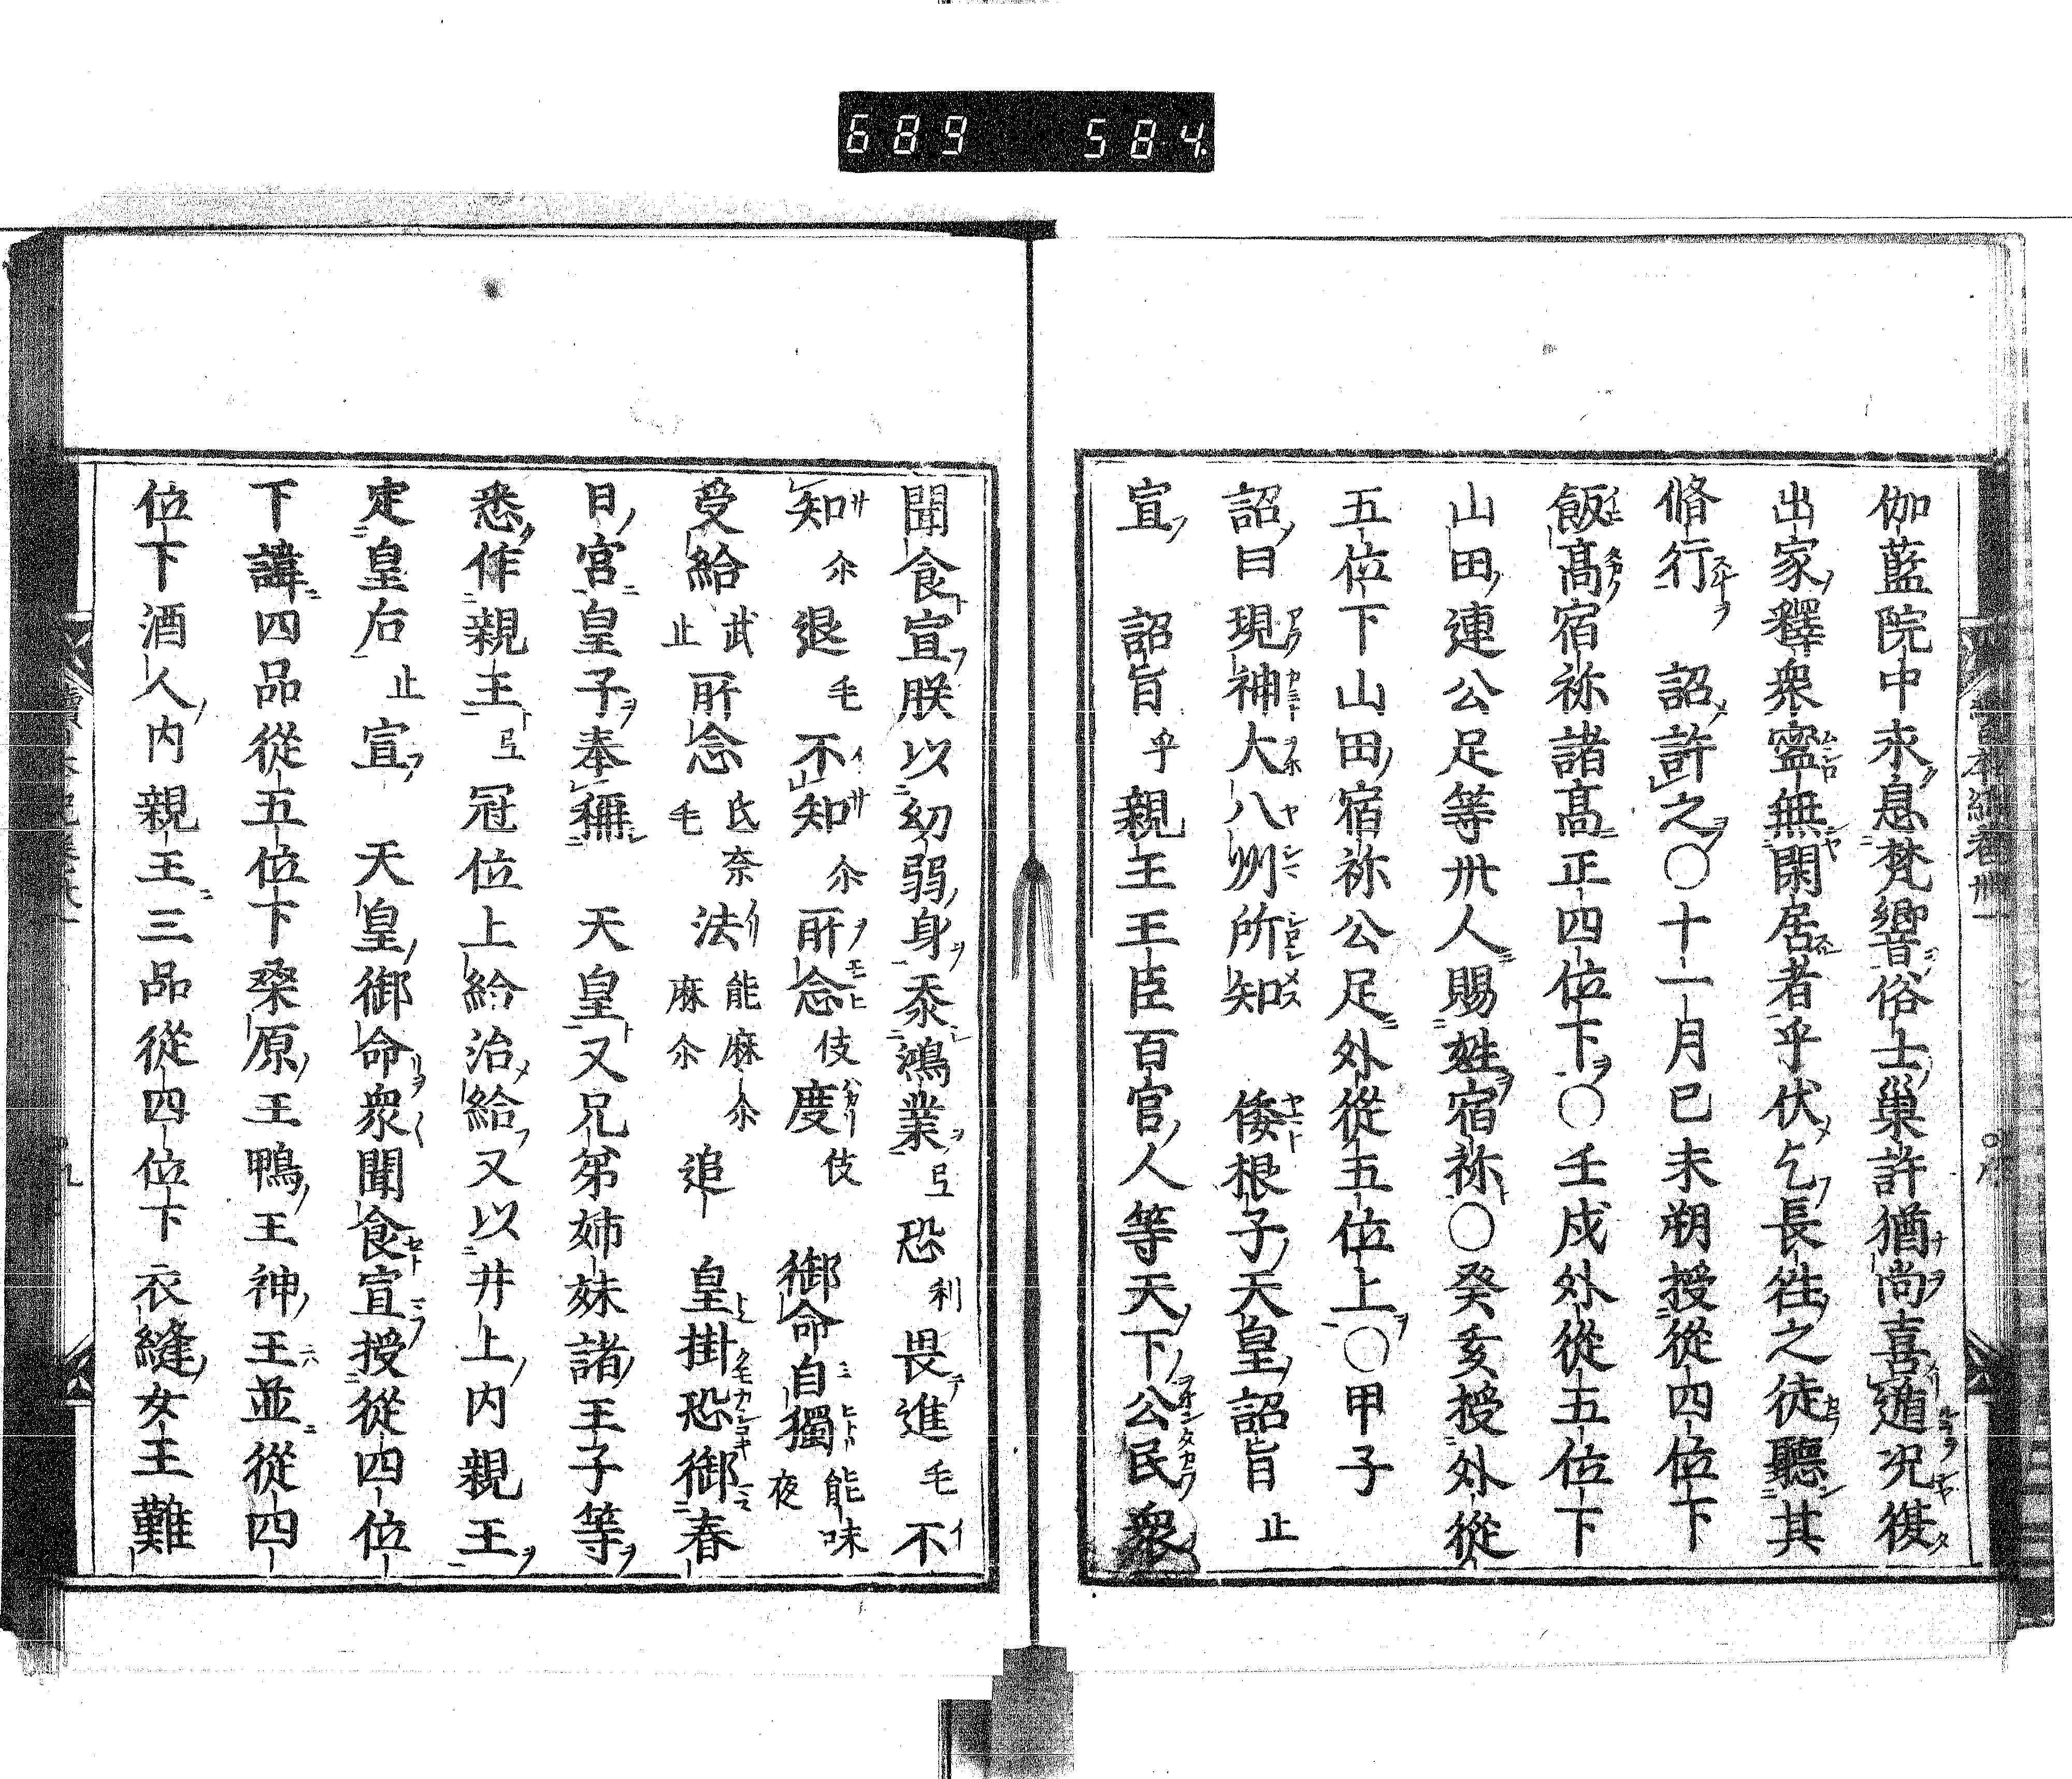 伽藍院中永息梵響俗士巢許猶尚喜遁況復
出家釋衆寧無閑居者乎伏乞長徃之徒聽其
脩行　詔許之〇十一月己未朔授從四位下
飯髙宿祢諸髙正四位下〇壬戌外從五位下
山田連公足等卅人賜姓宿祢〇癸亥授外從
五位下山田宿祢公足外從五位上〇甲子
詔曰現神大八州所知　倭根子天皇詔旨止
宣　詔旨乎親王王臣百官人等天下公民衆
聞食宣朕以幼弱身忝鴻業弖恐利畏進毛不
知尒退毛不知尒所念伎度伎　御命自獨能味夜
受給武止所念氐奈毛法能麻尒麻尒追　皇掛恐御春
日宮皇子奉稱　天皇又兄弟姉妹諸王子等
悉作親王弖冠位上給治給又以井上内親王
定皇后止宣　天皇御命衆聞食宣授從四位
下諱四品從五位下桑原王鴨王神王並從四
位下酒人内親王三品從四位下衣縫女王難
689 584